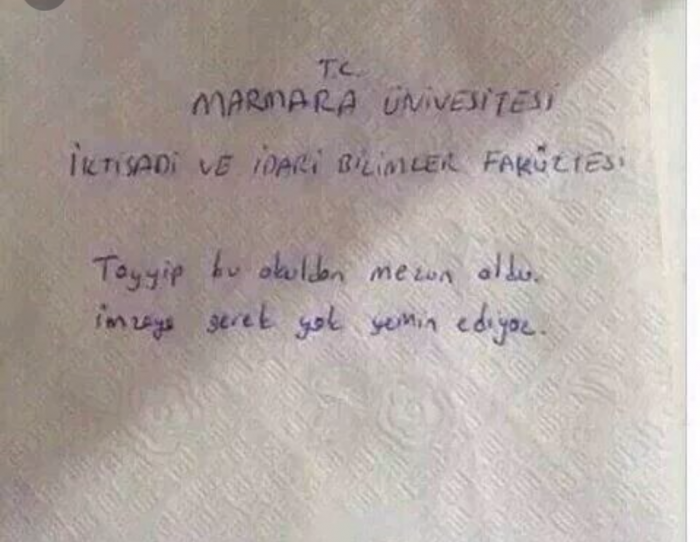 T.C.
MARMARA ÜNİVESİTESİ
İKTİSADİ VE İDARİ BİLİMLER FAKÜLTESİ
Tayyip bu okuldan mezun oldu.
imzaya gerek yok yemin ediyor.